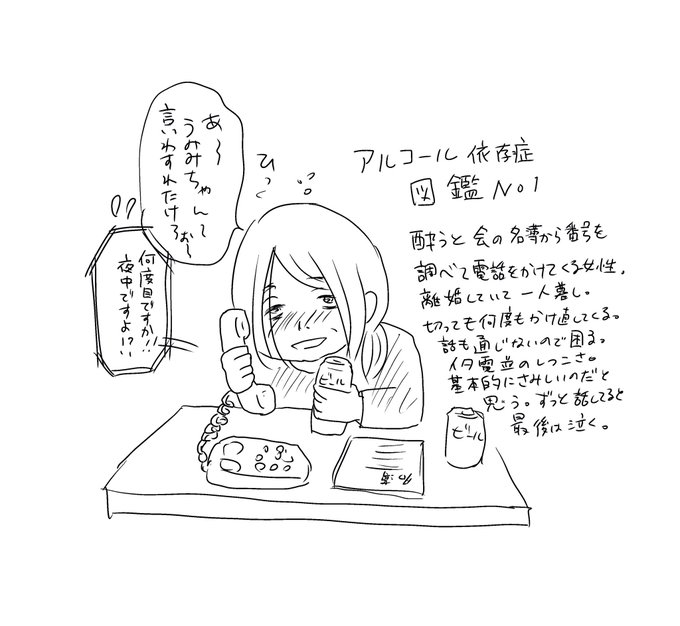 アルコール依存症
図鑑No1
あ〜
うみみちゃんて〜
言いわすれたけろぉ〜
ひっく
何度目ですか!!
夜中ですよ!?
酔うと会の名簿から番号を
調べて電話をかけてくる女性。
離婚していて一人暮し。
切っても何度もかけ直してくる。
話も通じないので困る。
イタ電並のしつこさ。
基本的にさみしいのだと
思う。ずっと話してると
最後は泣く。
ビール
ビール